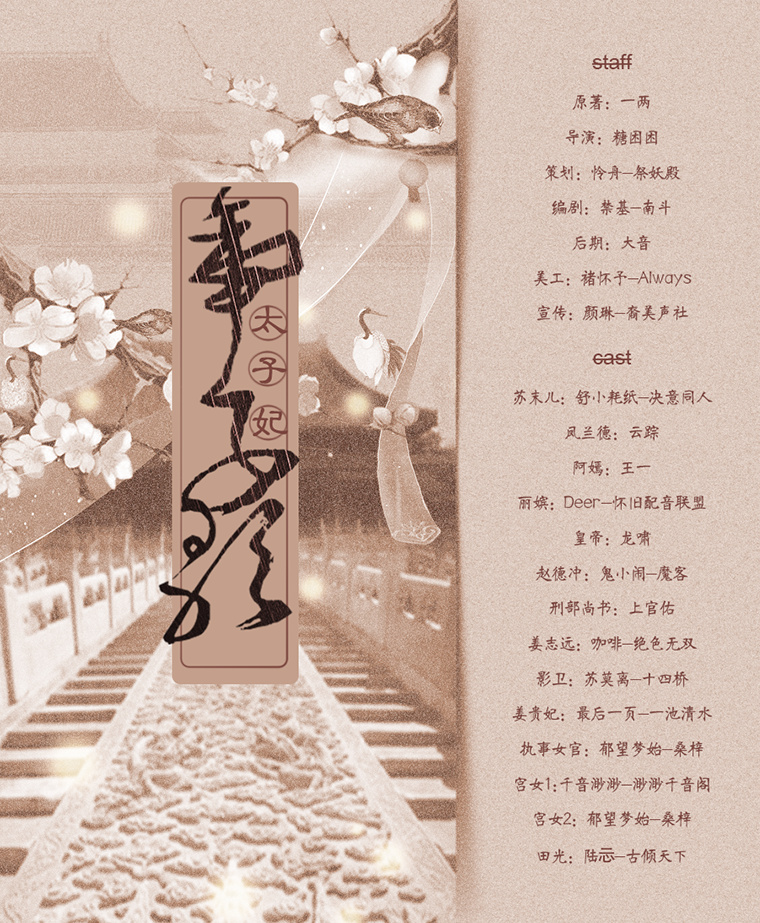 太子妃
staff
原著：一两
导演：糖困困
策划：怜舟—祭妖殿
编剧：禁基—南斗
后期：大音
美工：褚怀予—Always
宣传：颜琳—裔美声社
cast
苏末儿：舒小耗纸—决意同人
风兰德：云踪
阿嫣：王一
丽嫔：Deer—怀旧配音联盟
皇帝：龙啸
赵德冲：鬼小闹—魔客
刑部尚书：上官佑
姜志远：咖啡—绝色无双
影卫：苏莫离—十四桥
姜贵妃：最后一页—一池清水
执事女官：郁望梦始—桑梓
宫女1：千音渺渺—渺渺千音阁
宫女2：郁望梦始—桑梓
田光：陆—古倾天下